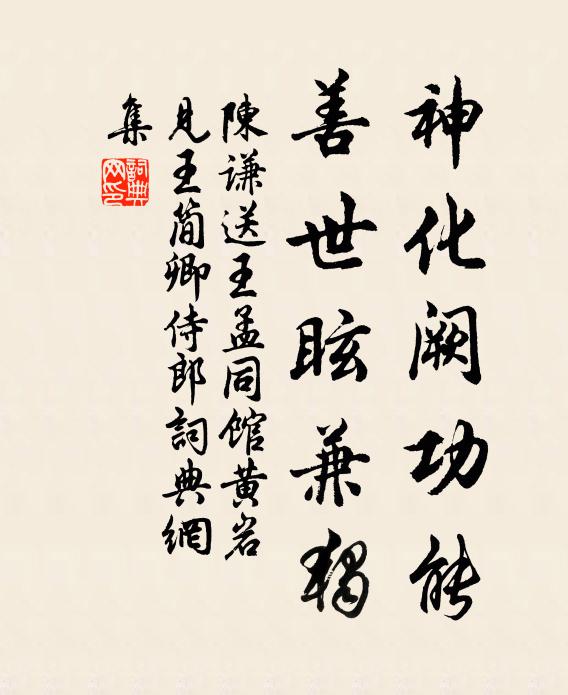 神化阙功能
善世眩兼獨
陳謙送王孟同馆黄岩
見王简卿侍郎詞典網
集
詞典網印